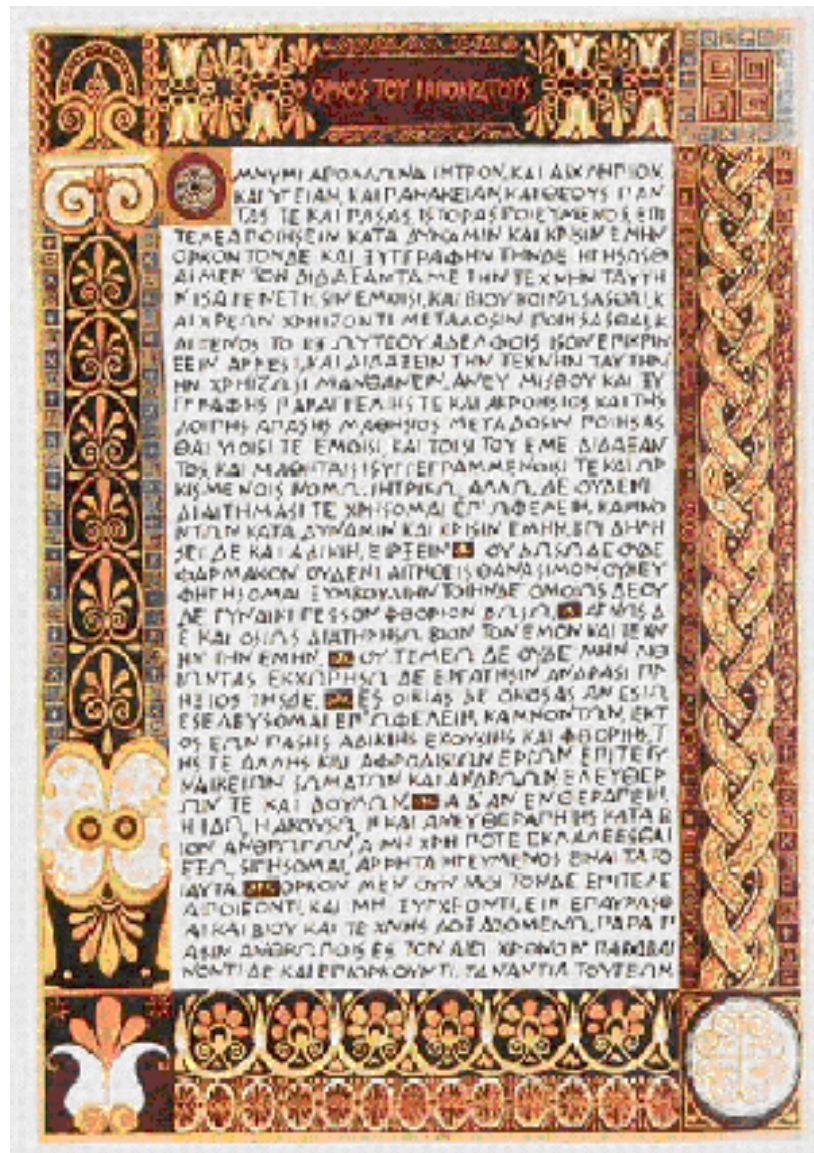 ΟΡΚΟΣ ΤΟΥ ΙΠΠΟΚΡΑΤΟΥΣ
ΟΜΝΥΜΙ ΑΠΟΛΛΩΝΑ ΙΗΤΡΟΝ, ΚΑΙ ΑΣΚΛΗΠΙΟΝ,
ΚΑΙ ΥΓΕΙΑΝ, ΚΑΙ ΠΑΝΑΚΕΙΑΝ, ΚΑΙ ΘΕΟΥΣ ΠΑΝ
ΤΑΣ ΤΕ ΚΑΙ ΠΑΣΑΣ ΙΣΤΟΡΑΣ ΠΟΙΕΥΜΕΝΟΣ, ΕΠΙ
ΤΕΛΕΑ ΠΟΙΗΣΕΙΝ ΚΑΤΑ ΔΥΝΑΜΙΝ ΚΑΙ ΚΡΙΣΙΝ ΕΜΗΝ
ΟΡΚΟΝ ΤΟΝΔΕ ΚΑΙ ΞΥΓΓΡΑΦΗΝ ΤΗΝΔΕ ΗΓΗΣΑΣΘ
ΑΙ ΜΕΝ ΤΟΝ ΔΙΔΑΞΑΝΤΑ ΜΕ ΤΗΝ ΤΕΧΝΗΝ ΤΑΥΤΗ
Ν ΙΣΑ ΓΕΝΕΤΗΣΙΝ ΕΜΟΙΣΙ, ΚΑΙ ΒΙΟΥ ΚΟΙΝΩΣΑΣΘΑΙ, Κ
ΑΙ ΧΡΕΩΝ ΧΡΗΙΖΟΝΤΙ ΜΕΤΑΔΟΣΙΝ ΠΟΙΗΣΑΣΘΑΙ, Κ
ΑΙ ΓΕΝΟΣ ΤΟ ΕΞ ΩΥΤΕΟΥ ΑΔΕΛΦΟΙΣ ΙΣΟΝ ΕΠΙΚΡΙΝ
ΕΕΙΝ ΑΡΡΕΣΙ, ΚΑΙ ΔΙΔΑΞΕΙΝ ΤΗΝ ΤΕΧΝΗΝ ΤΑΥΤΗΝ
ΗΝ ΧΡΗΙΖΩΣΙ ΜΑΝΘΑΝΕΙΝ, ΑΝΕΥ ΜΙΣΘΟΥ ΚΑΙ ΞΥ
ΓΓΡΑΦΗΣ ΠΑΡΑΓΓΕΛΙΗΣ ΤΕ ΚΑΙ ΑΚΡΟΗΣΙΟΣ ΚΑΙ ΤΗΣ
ΛΟΙΠΗΣ ΑΠΑΣΗΣ ΜΑΘΗΣΙΟΣ ΜΕΤΑΔΟΣΙΝ ΠΟΙΗΣΑΣ
ΘΑΙ ΥΙΟΙΣΙ ΤΕ ΕΜΟΙΣΙ, ΚΑΙ ΤΟΙΣΙ ΤΟΥ ΕΜΕ ΔΙΔΑΞΑΝ
ΤΟΣ, ΚΑΙ ΜΑΘΗΤΑΙΣΙ ΣΥΓΓΕΓΡΑΜΜΕΝΟΙΣΙ ΤΕ ΚΑΙ ΩΡ
ΚΙΣΜΕΝΟΙΣ ΝΟΜΩ ΙΗΤΡΙΚΩ, ΑΛΛΩ ΔΕ ΟΥΔΕΝΙ
ΔΙΑΙΤΗΜΑΣΙ ΤΕ ΧΡΗΣΟΜΑΙ ΕΠ' ΩΦΕΛΕΙΗ ΚΑΜΝΟ
ΝΤΩΝ ΚΑΤΑ ΔΥΝΑΜΙΝ ΚΑΙ ΚΡΙΣΙΝ ΕΜΗΝ, ΕΠΙ ΔΗΛΗ
ΣΕΙ ΔΕ ΚΑΙ ΑΔΙΚΙΗ, ΕΙΡΞΕΙΝ ΟΥ ΔΩΣΩ ΔΕ ΟΥΔΕ
ΦΑΡΜΑΚΟΝ ΟΥΔΕΝΙ ΑΙΤΗΘΕΙΣ ΘΑΝΑΣΙΜΟΝ ΟΥΔΕ Υ
ΦΗΓΗΣΟΜΑΙ ΞΥΜΒΟΥΛΙΗΝ ΤΟΙΗΝΔΕ ΟΜΟΙΩΣ ΔΕ ΟΥ
ΔΕ ΓΥΝΑΙΚΙ ΠΕΣΣΟΝ ΦΘΟΡΙΟΝ ΔΩΣΩ. ΑΓΝΩΣ Δ
Ε ΚΑΙ ΟΣΙΩΣ ΔΙΑΤΗΡΗΣΩ ΒΙΟΝ ΤΟΝ ΕΜΟΝ ΚΑΙ ΤΕΧΝ
ΗΝ ΤΗΝ ΕΜΗΝ. ΟΥ ΤΕΜΕΩ ΔΕ ΟΥΔΕ ΜΗΝ ΛΙΘ
ΙΩΝΤΑΣ, ΕΚΧΩΡΗΣΩ ΔΕ ΕΡΓΑΤΗΣΙΝ ΑΝΔΡΑΣΙ ΠΡ
ΗΞΙΟΣ ΤΗΣΔΕ. ΕΣ ΟΙΚΙΑΣ ΔΕ ΟΚΟΣΑΣ ΑΝ ΕΣΙΩ
ΕΣΕΛΕΥΣΟΜΑΙ ΕΠ' ΩΦΕΛΕΙΗ ΚΑΜΝΟΝΤΩΝ, ΕΚΤ
ΟΣ ΕΩΝ ΠΑΣΗΣ ΑΔΙΚΙΗΣ ΕΚΟΥΣΙΗΣ ΚΑΙ ΦΘΟΡΙΗΣ, Τ
ΗΣ ΤΕ ΑΛΛΗΣ ΚΑΙ ΑΦΡΟΔΙΣΙΩΝ ΕΡΓΩΝ ΕΠΙ ΤΕ ΓΥ
ΝΑΙΚΕΙΩΝ ΣΩΜΑΤΩΝ ΚΑΙ ΑΝΔΡΩΩΝ ΕΛΕΥΘΕΡ
ΩΝ ΤΕ ΚΑΙ ΔΟΥΛΩΝ. Α Δ' ΑΝ ΕΝ ΘΕΡΑΠΕΙΗ
Η ΙΔΩ, Η ΑΚΟΥΣΩ, Η ΚΑΙ ΑΝΕΥ ΘΕΡΑΠΗΙΗΣ ΚΑΤΑ Β
ΙΟΝ ΑΝΘΡΩΠΩΝ, Α ΜΗ ΧΡΗ ΠΟΤΕ ΕΚΛΑΛΕΕΣΘΑΙ
ΕΞΩ, ΣΙΓΗΣΟΜΑΙ, ΑΡΡΗΤΑ ΗΓΕΥΜΕΝΟΣ ΕΙΝΑΙ ΤΑ ΤΟ
ΙΑΥΤΑ. ΟΡΚΟΝ ΜΕΝ ΟΥΝ ΜΟΙ ΤΟΝΔΕ ΕΠΙΤΕΛΕ
Α ΠΟΙΕΟΝΤΙ, ΚΑΙ ΜΗ ΞΥΓΧΕΟΝΤΙ, ΕΙΗ ΕΠΑΥΡΑΣΘ
ΑΙ ΚΑΙ ΒΙΟΥ ΚΑΙ ΤΕΧΝΗΣ ΔΟΞΑΖΟΜΕΝΩ, ΠΑΡΑ Π
ΑΣΙΝ ΑΝΘΡΩΠΟΙΣ ΕΣ ΤΟΝ ΑΙΕΙ ΧΡΟΝΟΝ ΠΑΡΑΒΑΙ
ΝΟΝΤΙ ΔΕ ΚΑΙ ΕΠΙΟΡΚΟΥΝΤΙ, ΤΑΝΑΝΤΙΑ ΤΟΥΤΕΩΝ